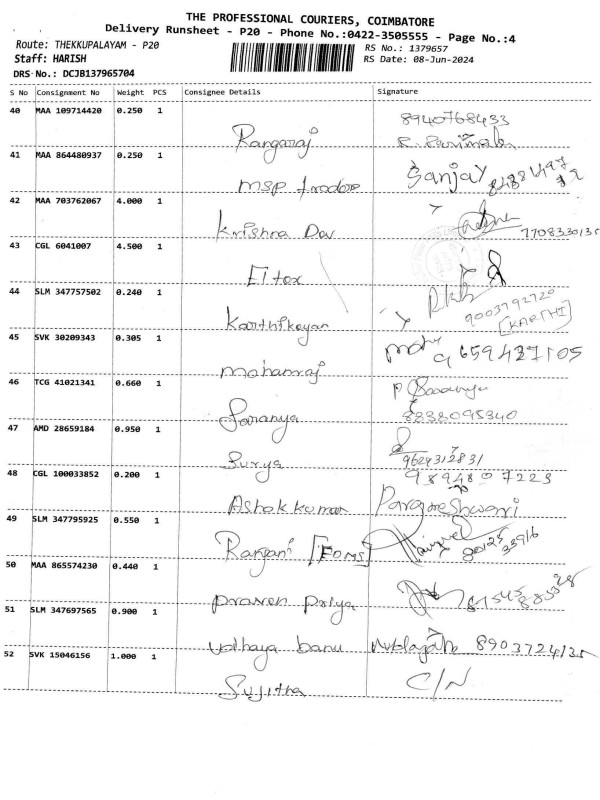 THE PROFESSIONAL COURIERS, COIMBATORE
Delivery Runsheet - P20 - Phone No.:0422-3505555 - Page No.:4
Route: THEKKUPALAYAM - P20
RS No.: 1379657
Staff: HARISH
RS Date: 08-Jun-2024
DRS No.: DCJB137965704
S No Consignment No Weight PCS Consignee Details Signature
40 MAA 109714420 0.250 1
8940768433
Rangaraj
41 MAA 864480937 0.250 1
Sanjay
msp
42 MAA 703762067 4.000 1
Krishna Dev
7708330135
43 CGL 6041007 4.500 1
Eltex
44 SLM 347757502 0.240 1
9003792720
Karthikeyan
[KARTHI]
45 SVK 30209343 0.305 1
9659437105
mohanraj
46 TCG 41021341 0.660 1
P Saranya
Saranya
8838095340
47 AMD 28659184 0.950 1
Surya
9629312831
48 CGL 100033852 0.200 1
9894807223
Ashok kumar
Parameshwari
49 SLM 347795925 0.550 1
Ranjani
50 MAA 865574230 0.440 1
praven priya
51 SLM 347697565 0.900 1
Udhaya banu
8903724135
52 SVK 15046156 1.000 1
Sujitha
C/N